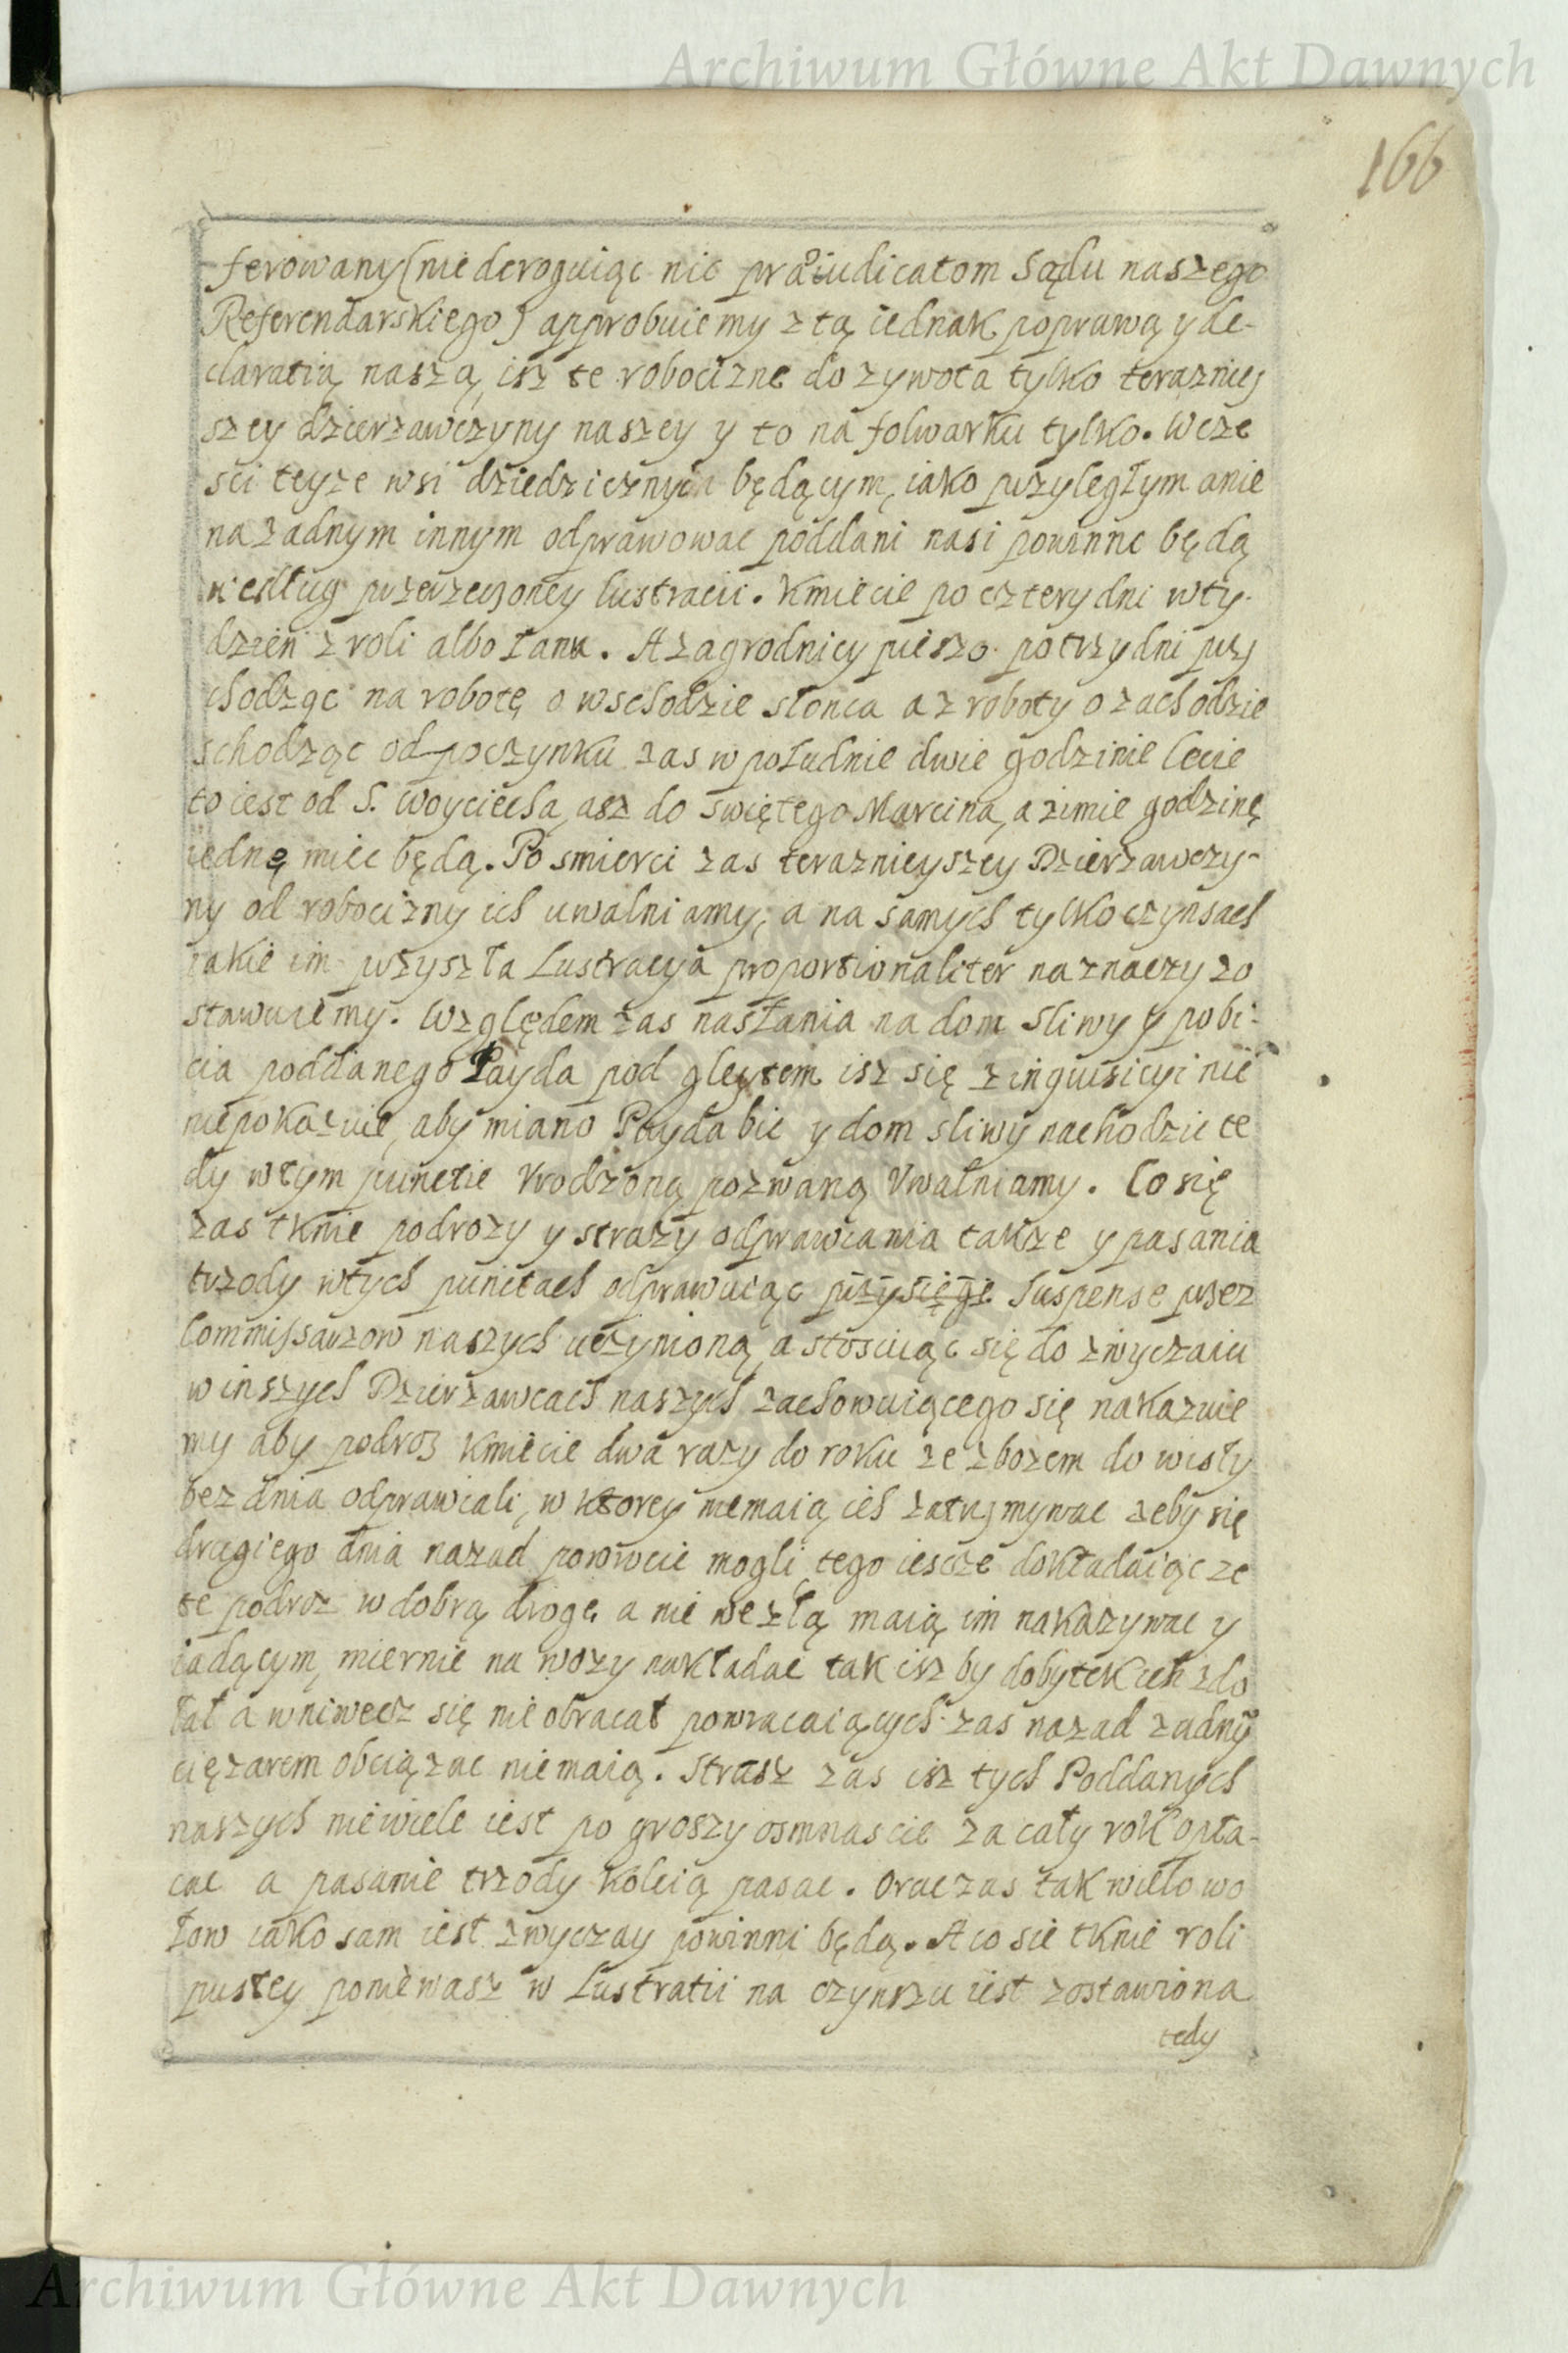 Archiwum Główne Akt Dawnych
166
ferowany (nie deroguiąc nic præiudicatom Sądu naszego
Referendarskiego) approbuiemy z tą iednak poprawą y de-
claratią naszą, isz te robocizne do zywota tylko terazniey
szey dzierzawczyny naszey y to na folwarku tylko. wczę
sci teyze wsi dziedzicznych będącym, iako przyległym a nie
na zadnym innym odprawowac poddani nasi powinne będą
według przerzeczoney lustracii. Kmiecie po cztery dni w ty-
dzien z roli albo łanu. A zagrodnicy pieszo po trzy dni przy
chodząc na robotę o wschodzie słonca a z roboty o zachodzie
schodząc odpoczynku zas w południe dwie godzinie lecie
to iest od S. Woyciecha asz do swiętego Marcina, a zimie godzinę
iednę miec będą. Po smierci zas teraznieyszey Dzierzawczy-
ny od robocizny ich uwalniamy, a na samych tylko czynsach
iakie im przyszła Lustracya proportionaliter naznaczy zo
stawuiemy. Względem zas nasłania na dom Sliwy y pobi-
cia poddanego Payda pod gleytem isz się z inquisicyi nie
niepokazuie, aby miano Payda bic y dom sliwy nachodzic te
dy w tym punctie Vrodzoną pozwaną Vwalniamy. Co się
zas tknie podrozy y strazy odprawiania takze y pasania
trzody w tych punctach odprawuiąc przysięgę Suspense przez
Commissarzow naszych uczynioną, a stosuiąc się do zwyczaiu
w inszych Dzierzawcach naszych zachowuiącego się nakazuie
my aby podroz kmiecie dwa razy do roku ze zbozem do wisły
bez dnia odprawiali, w ktorey niemaią ich zatrzymywac zeby się
drugiego dnia nazad powrocic mogli, tego iescze dokładaiąc ze
te podroz w dobrą drogę a nie we złą maią im nakazywac y
iadącym miernie na wozy nakładac tak isz by dobytek ich zdo
łał a wniwecz się nie obracał powracaiących zas nazad zadnȳ
ciężarem obciązac niemaią. Strasz zas isz tych Poddanych
naszych niewiele iest po groszy osmnascie za cały rok opła-
cac a pasanie trzody koleią pasac. Orac zas tak wielo wo
łow iako sam iest zwyczay powinni będą. A co sie tknie roli
pustey poniewasz w Lustratii na czynszu iest zostawiona
tedy
Archiwum Główne Akt Dawnych